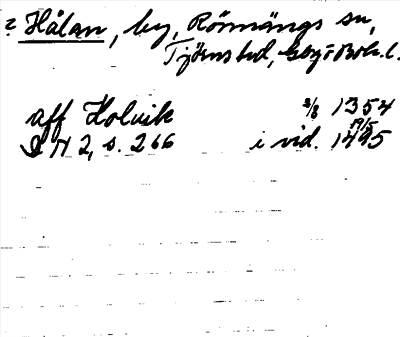 ? Hålan, by, Rönnängs sn,
Tjörns hd, Gbg o Boh. l.
aff Holvik 3/8 1354
DN 2, s. 266 i vid. 19/5 1495